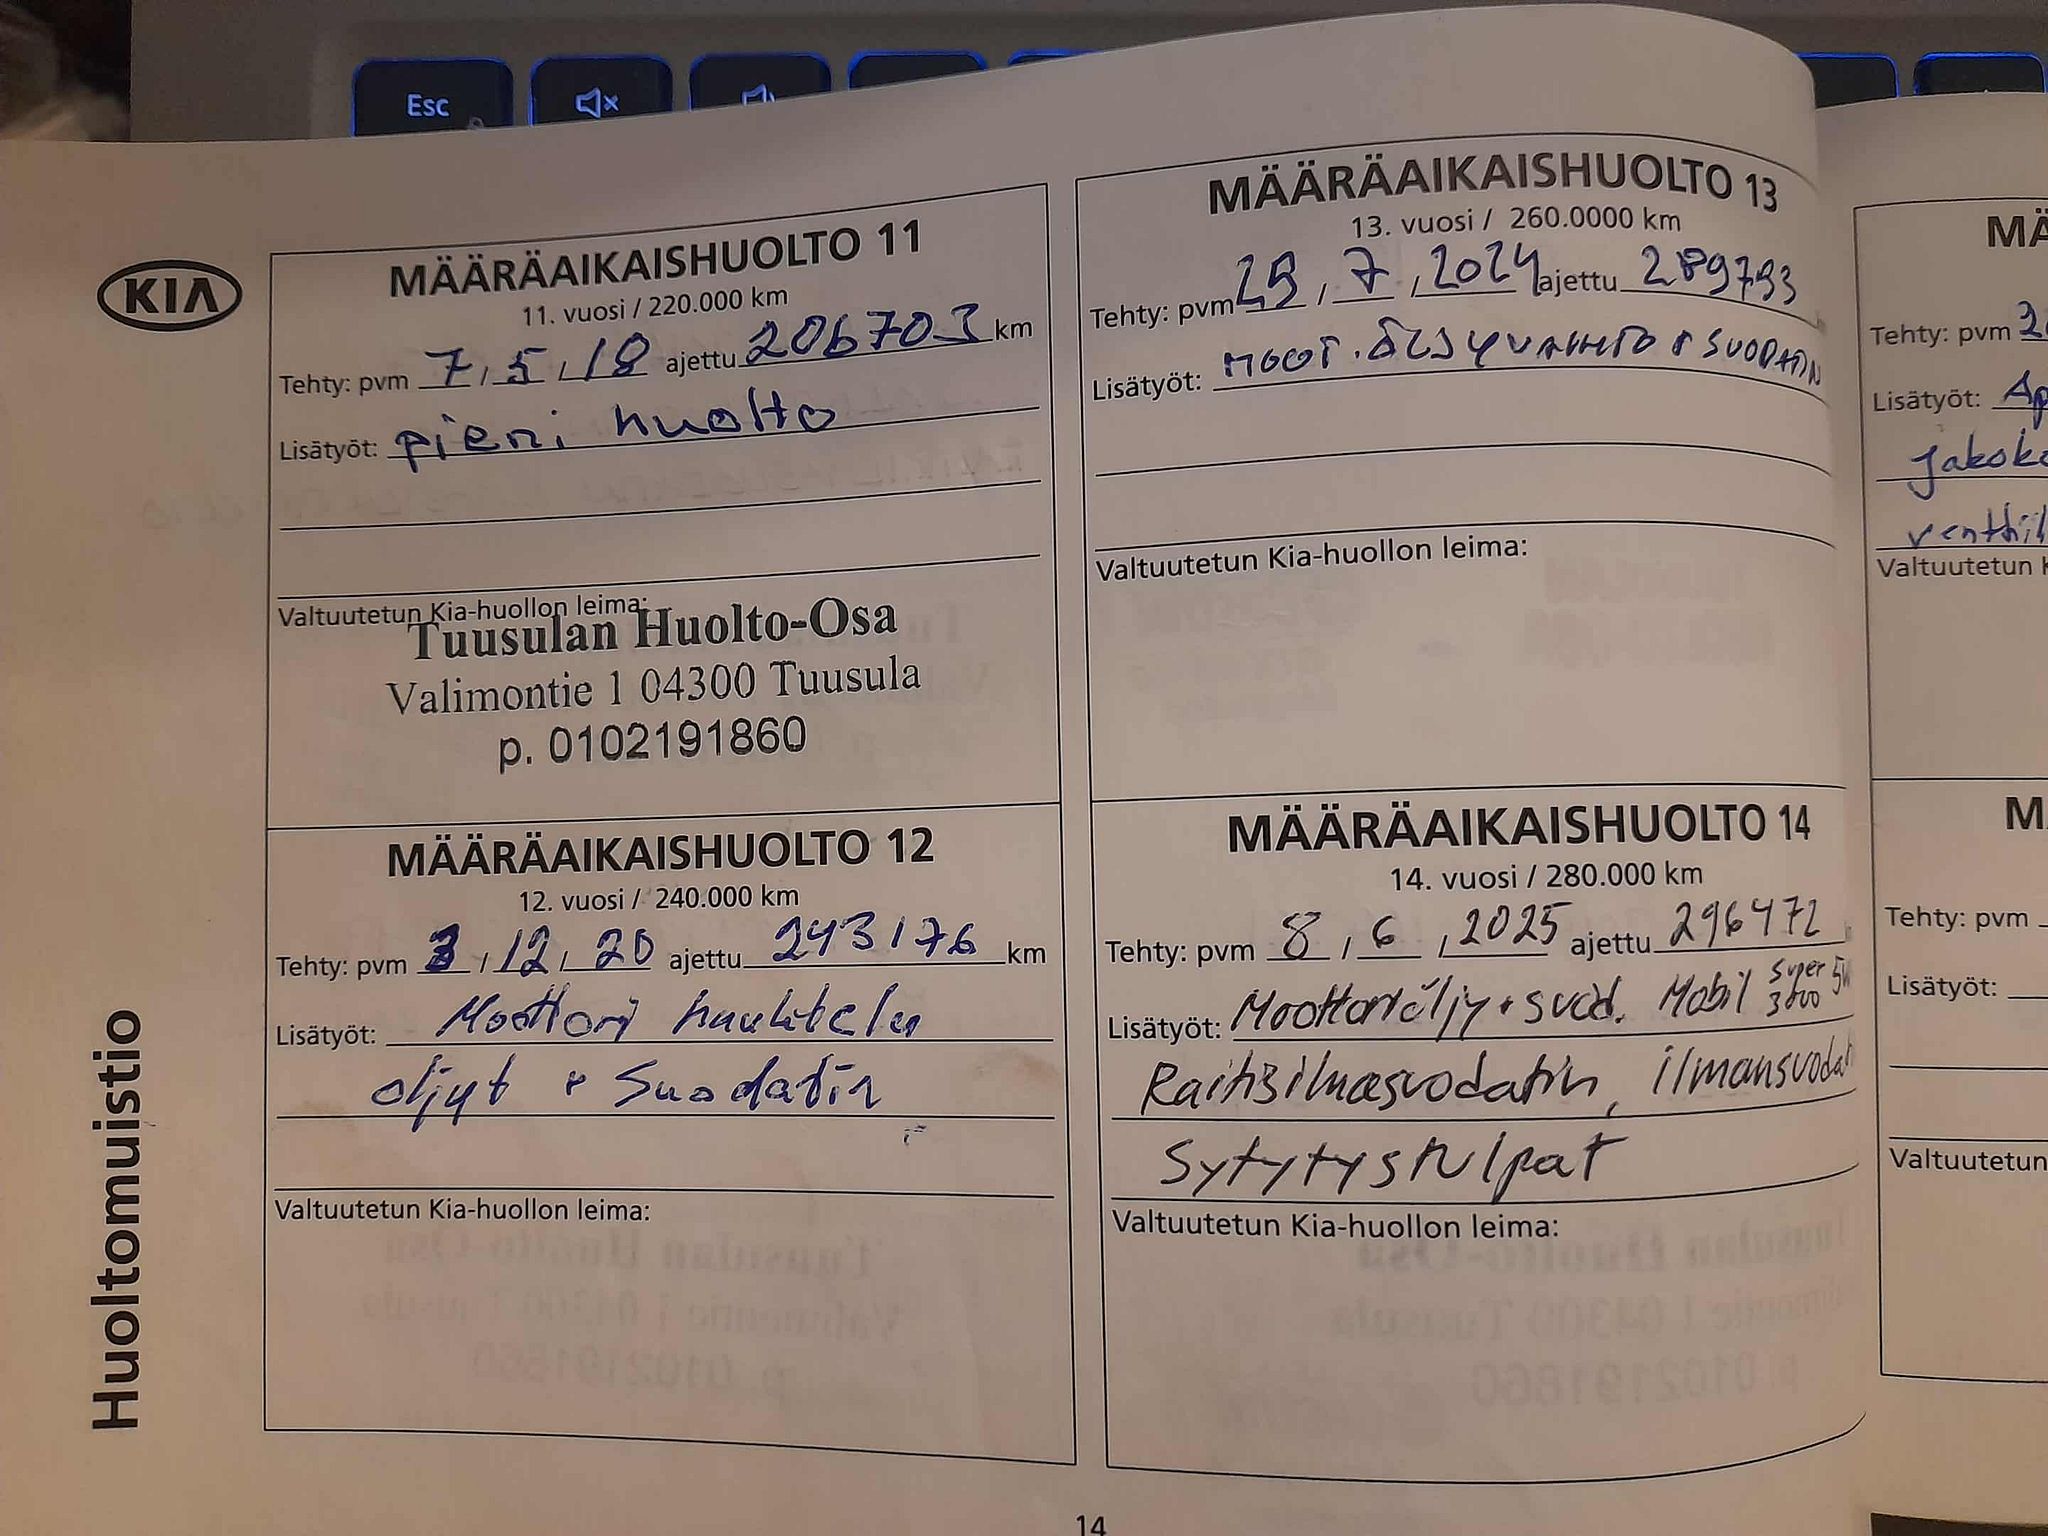 Esc
KIA
Huoltomuistio
MÄÄRÄAIKAISHUOLTO 11
11. vuosi / 220.000 km
Tehty: pvm 7, 5, 18 ajettu 206703 km
Lisätyöt: pieni huolto
Valtuutetun Kia-huollon leima:
Tuusulan Huolto-Osa
Valimontie 1 04300 Tuusula
p. 0102191860
MÄÄRÄAIKAISHUOLTO 12
12. vuosi / 240.000 km
Tehty: pvm 3, 12, 20 ajettu 243176 km
Lisätyöt: Moottori huuhtelu
öljyt + Suodatin
Valtuutetun Kia-huollon leima:
MÄÄRÄAIKAISHUOLTO 13
13. vuosi / 260.0000 km
Tehty: pvm 29, 7, 2024 ajettu 289793
Lisätyöt: MOOT. ÖLJYVAIHTO + SUODATIN
Valtuutetun Kia-huollon leima:
MÄÄRÄAIKAISHUOLTO 14
14. vuosi / 280.000 km
Tehty: pvm 8, 6, 2025 ajettu 296472
Lisätyöt: Moottoriöljy + suod. Mobil Super 3000 5W
Raitisilmasuodatin, ilmansuodat
Sytytystulpat
Valtuutetun Kia-huollon leima:
14
MÄ
Tehty: pvm 2
Lisätyöt: Ap
jakoke
venttiil
Valtuutetun K
M
Tehty: pvm
Lisätyöt:
Valtuutetun